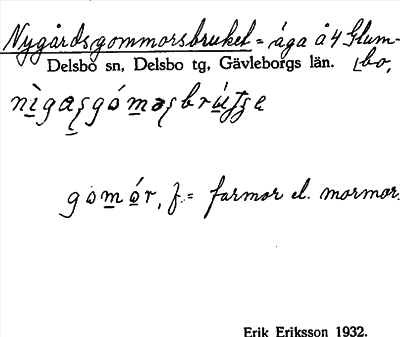 Nygårdsgommorsbruket = äga å 4 Glum-
Delsbo sn, Delsbo tg, Gävleborgs län. bo,
gomór, f. = farmor el. mormor.
Erik Eriksson 1932.